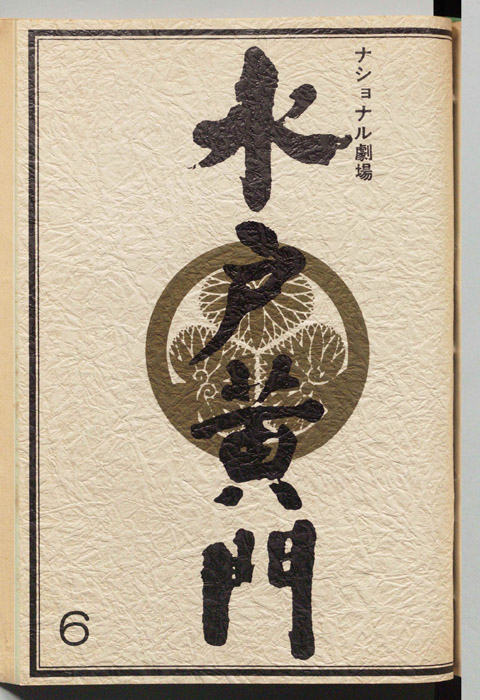 ナショナル劇場
水戸黄門
6